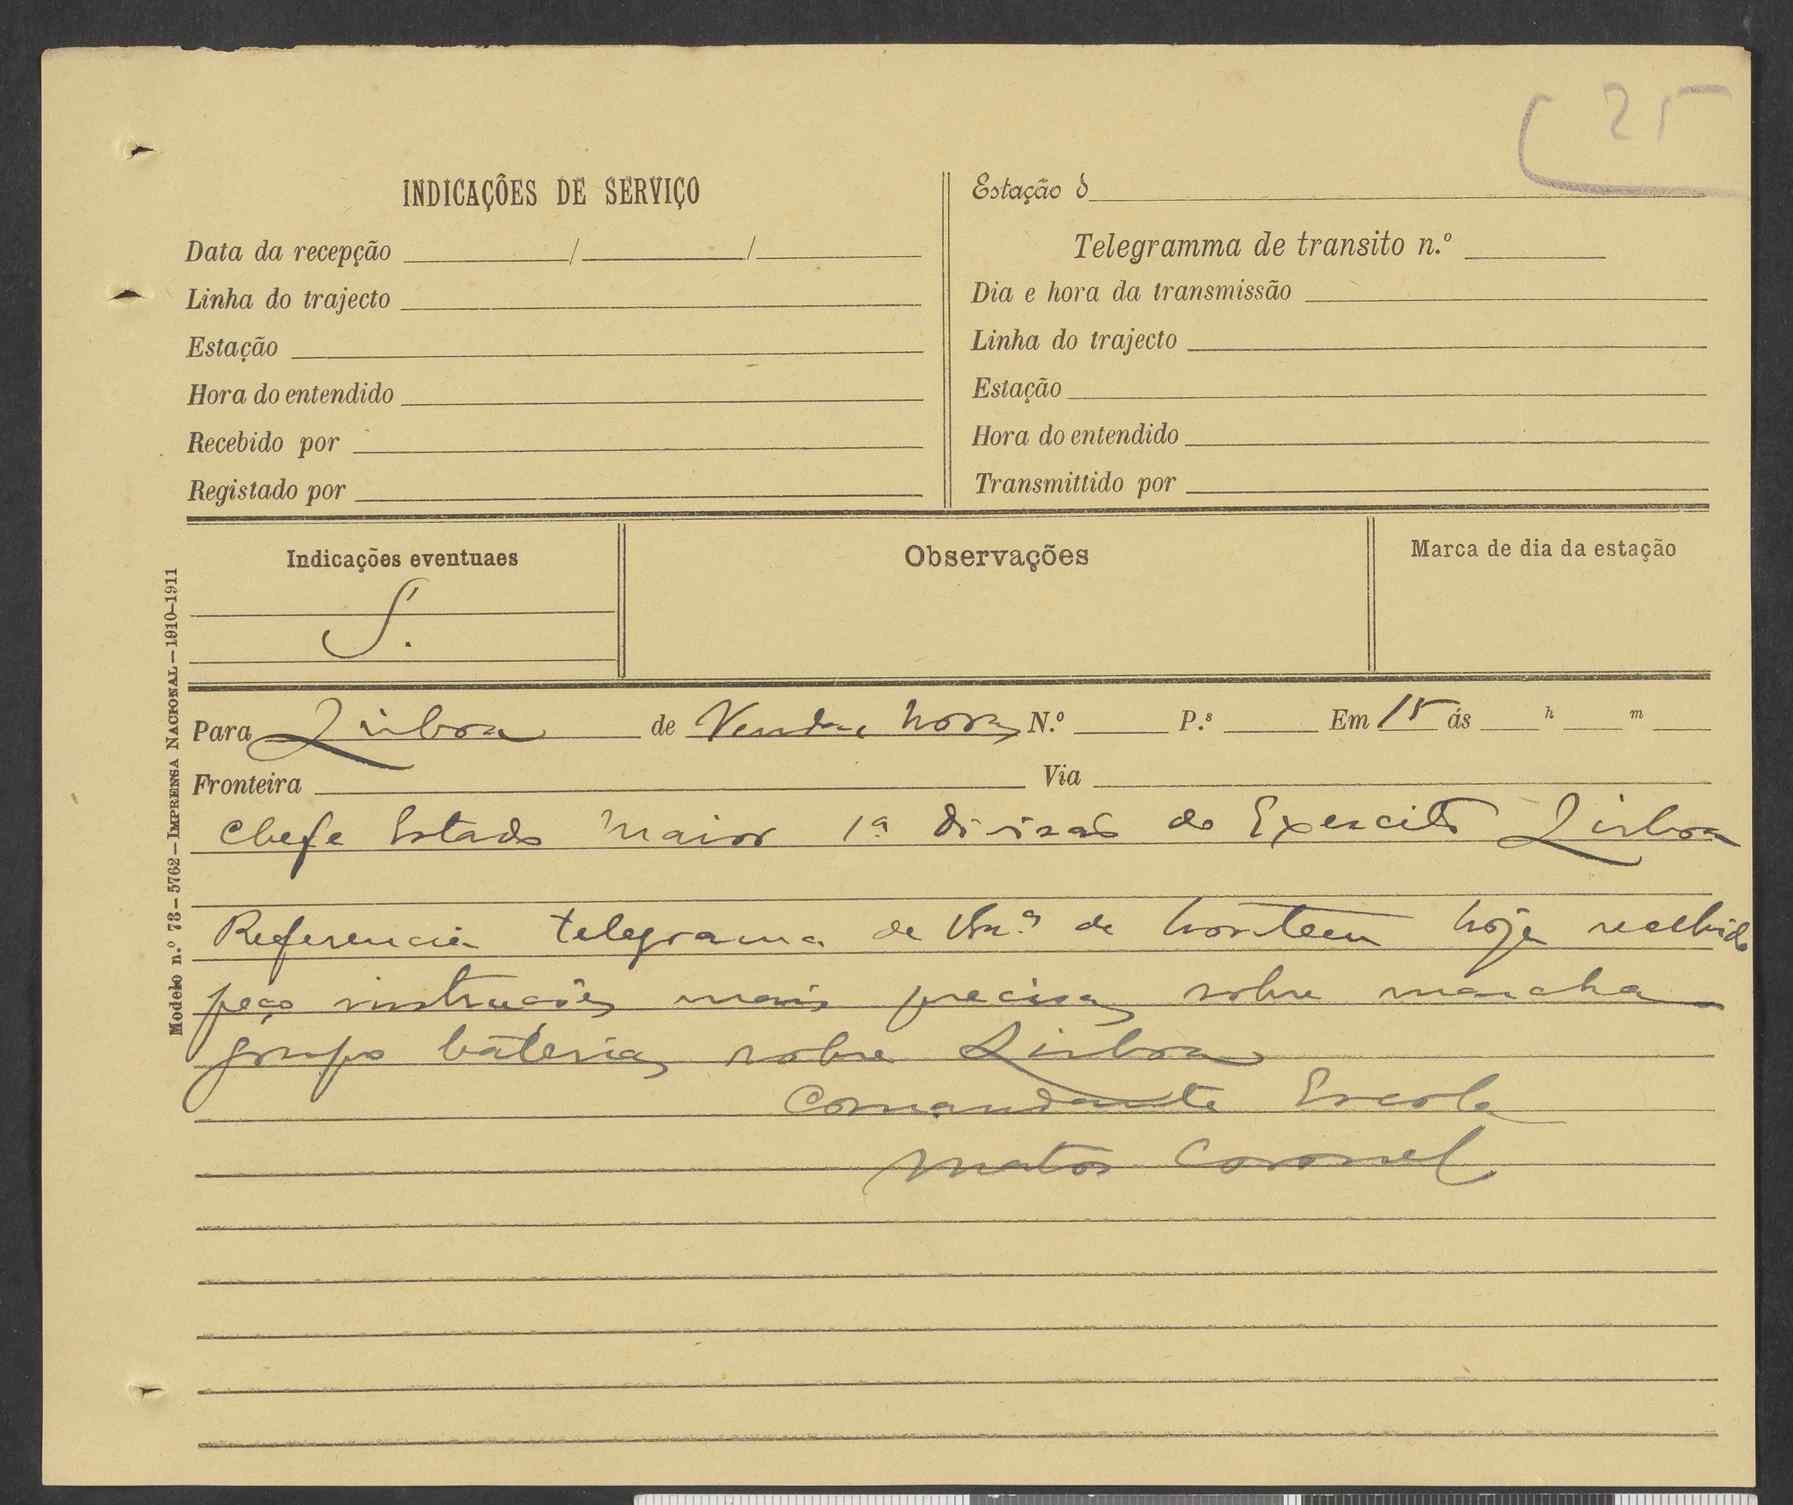 25
INDICAÇÕES DE SERVIÇO
Data da recepção / /
Linha do trajecto
Estação
Hora do entendido
Recebido por
Registado por
Estação d
Telegramma de transito n.º
Dia e hora da transmissão
Linha do trajecto
Estação
Hora do entendido
Transmittido por
Indicações eventuaes
S.
Observações
Marca de dia da estação
Modelo n.º 73 – 5762 – IMPRENSA NACIONAL – 1910-1911
Para Lisboa de Vendas Novas N.º P.s Em 15 ás h m
Fronteira Via
Chefe Estado Maior 1ª Divisão do Exercito Lisboa
Referencia telegrama de de hontem hoje recebido
peço instrucções mais precisas sobre marcha
grupo baterias sobre Lisboa
Comandante Escola
Matos Coronel